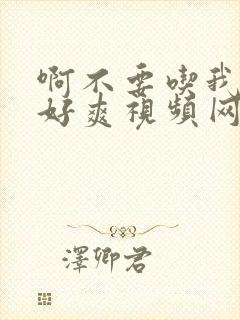 啊不要喫我
好爽視頻网
澤卿君